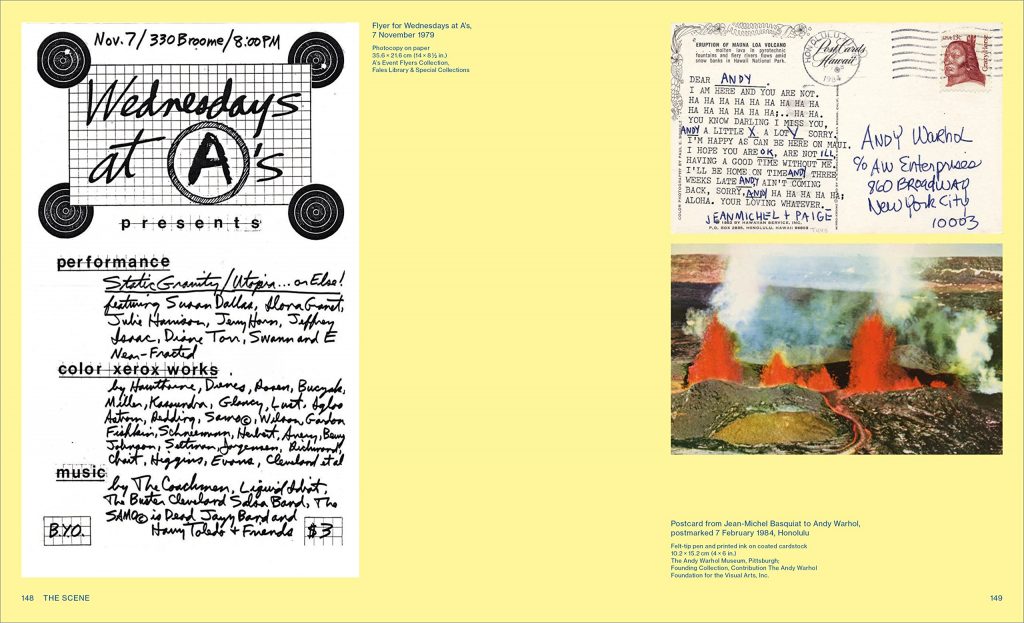 Nov. 7 / 330 Broome / 8:00 PM
Wednesdays
at A's
presents
performance
Static Gravity / Utopia... or Else!
featuring Susan Dallas, Ilona Granet,
Julie Harrison, Jerry Horn, Jeffrey
Isaac, Diane Torr, Swann and E
Near-Fracted
color xerox works
by Hawthorne, Dienes, Rosen, Buczak,
Miller, Kassundra, Glancy, Lust, Igloo
Astrom, Redding, Samo©, Wilson, Gordon
Fishkin, Schneeman, Herbert, Avery, Beny
Johnson, Seltman, Jorgensen, Richmond,
Chait, Higgins, Evans, Cleveland et al
music
by The Coachmen, Liquid Idiot,
The Buster Cleveland Salsa Band, The
SAMO© is Dead Jazz Band and
Harry Toledo + Friends
B.Y.O.
$3
Flyer for Wednesdays at A's,
7 November 1979
Photocopy on paper
35.6 × 21.6 cm (14 × 8½ in.)
A's Event Flyers Collection,
Fales Library & Special Collections
ERUPTION OF MAUNA LOA VOLCANO
molten lava in pyrotechnic
fountains and fiery rivers flows amid
snow banks in Hawaii National Park.
DEAR ANDY
I AM HERE AND YOU ARE NOT.
HA HA HA HA HA HA HA HA HA
HA HA HA HA HA HA;.. HA HA.
YOU KNOW DARLING I MISS YOU,
ANDY A LITTLE X A LOT Y SORRY.
I'M HAPPY AS CAN BE HERE ON MAUI.
I HOPE YOU ARE OK, ARE NOT ILL,
HAVING A GOOD TIME WITHOUT ME.
I'LL BE HOME ON TIME AND THREE
WEEKS LATE ANDY, AIN'T COMING
BACK, SORRY, ANDY HA HA HA HA HA;
ALOHA. YOUR LOVING WHATEVER.
JEANMICHEL + PAIGE
HAWAIIAN SERVICE, INC.
HONOLULU, HAWAII
COLOR PHOTOGRAPHY BY
Post Cards
Hawaii
HONOLULU
1984
USA 13c
Crazy Horse
ANDY WARHOL
℅ AW Enterprises
860 BROADWAY
New York City
10003
Postcard from Jean-Michel Basquiat to Andy Warhol,
postmarked 7 February 1984, Honolulu
Felt-tip pen and printed ink on coated cardstock
10.2 × 15.2 cm (4 × 6 in.)
The Andy Warhol Museum, Pittsburgh;
Founding Collection, Contribution The Andy Warhol
Foundation for the Visual Arts, Inc.
148 THE SCENE
149